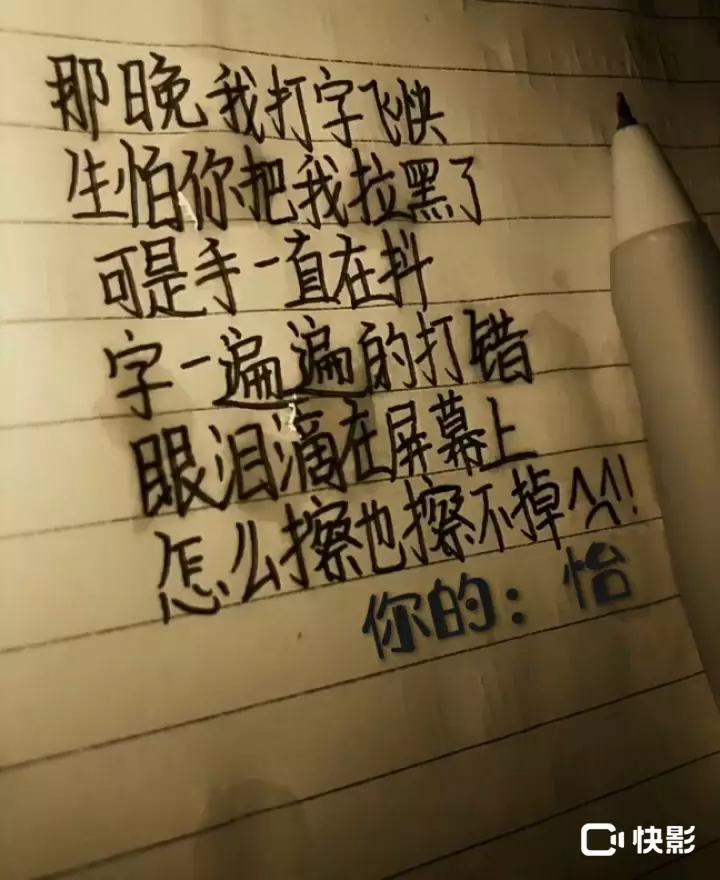 那晚我打字飞快
生怕你把我拉黑了
可是手一直在抖
字一遍遍的打错
眼泪滴在屏幕上
怎么擦也擦不掉^^!
你的：怡
快影